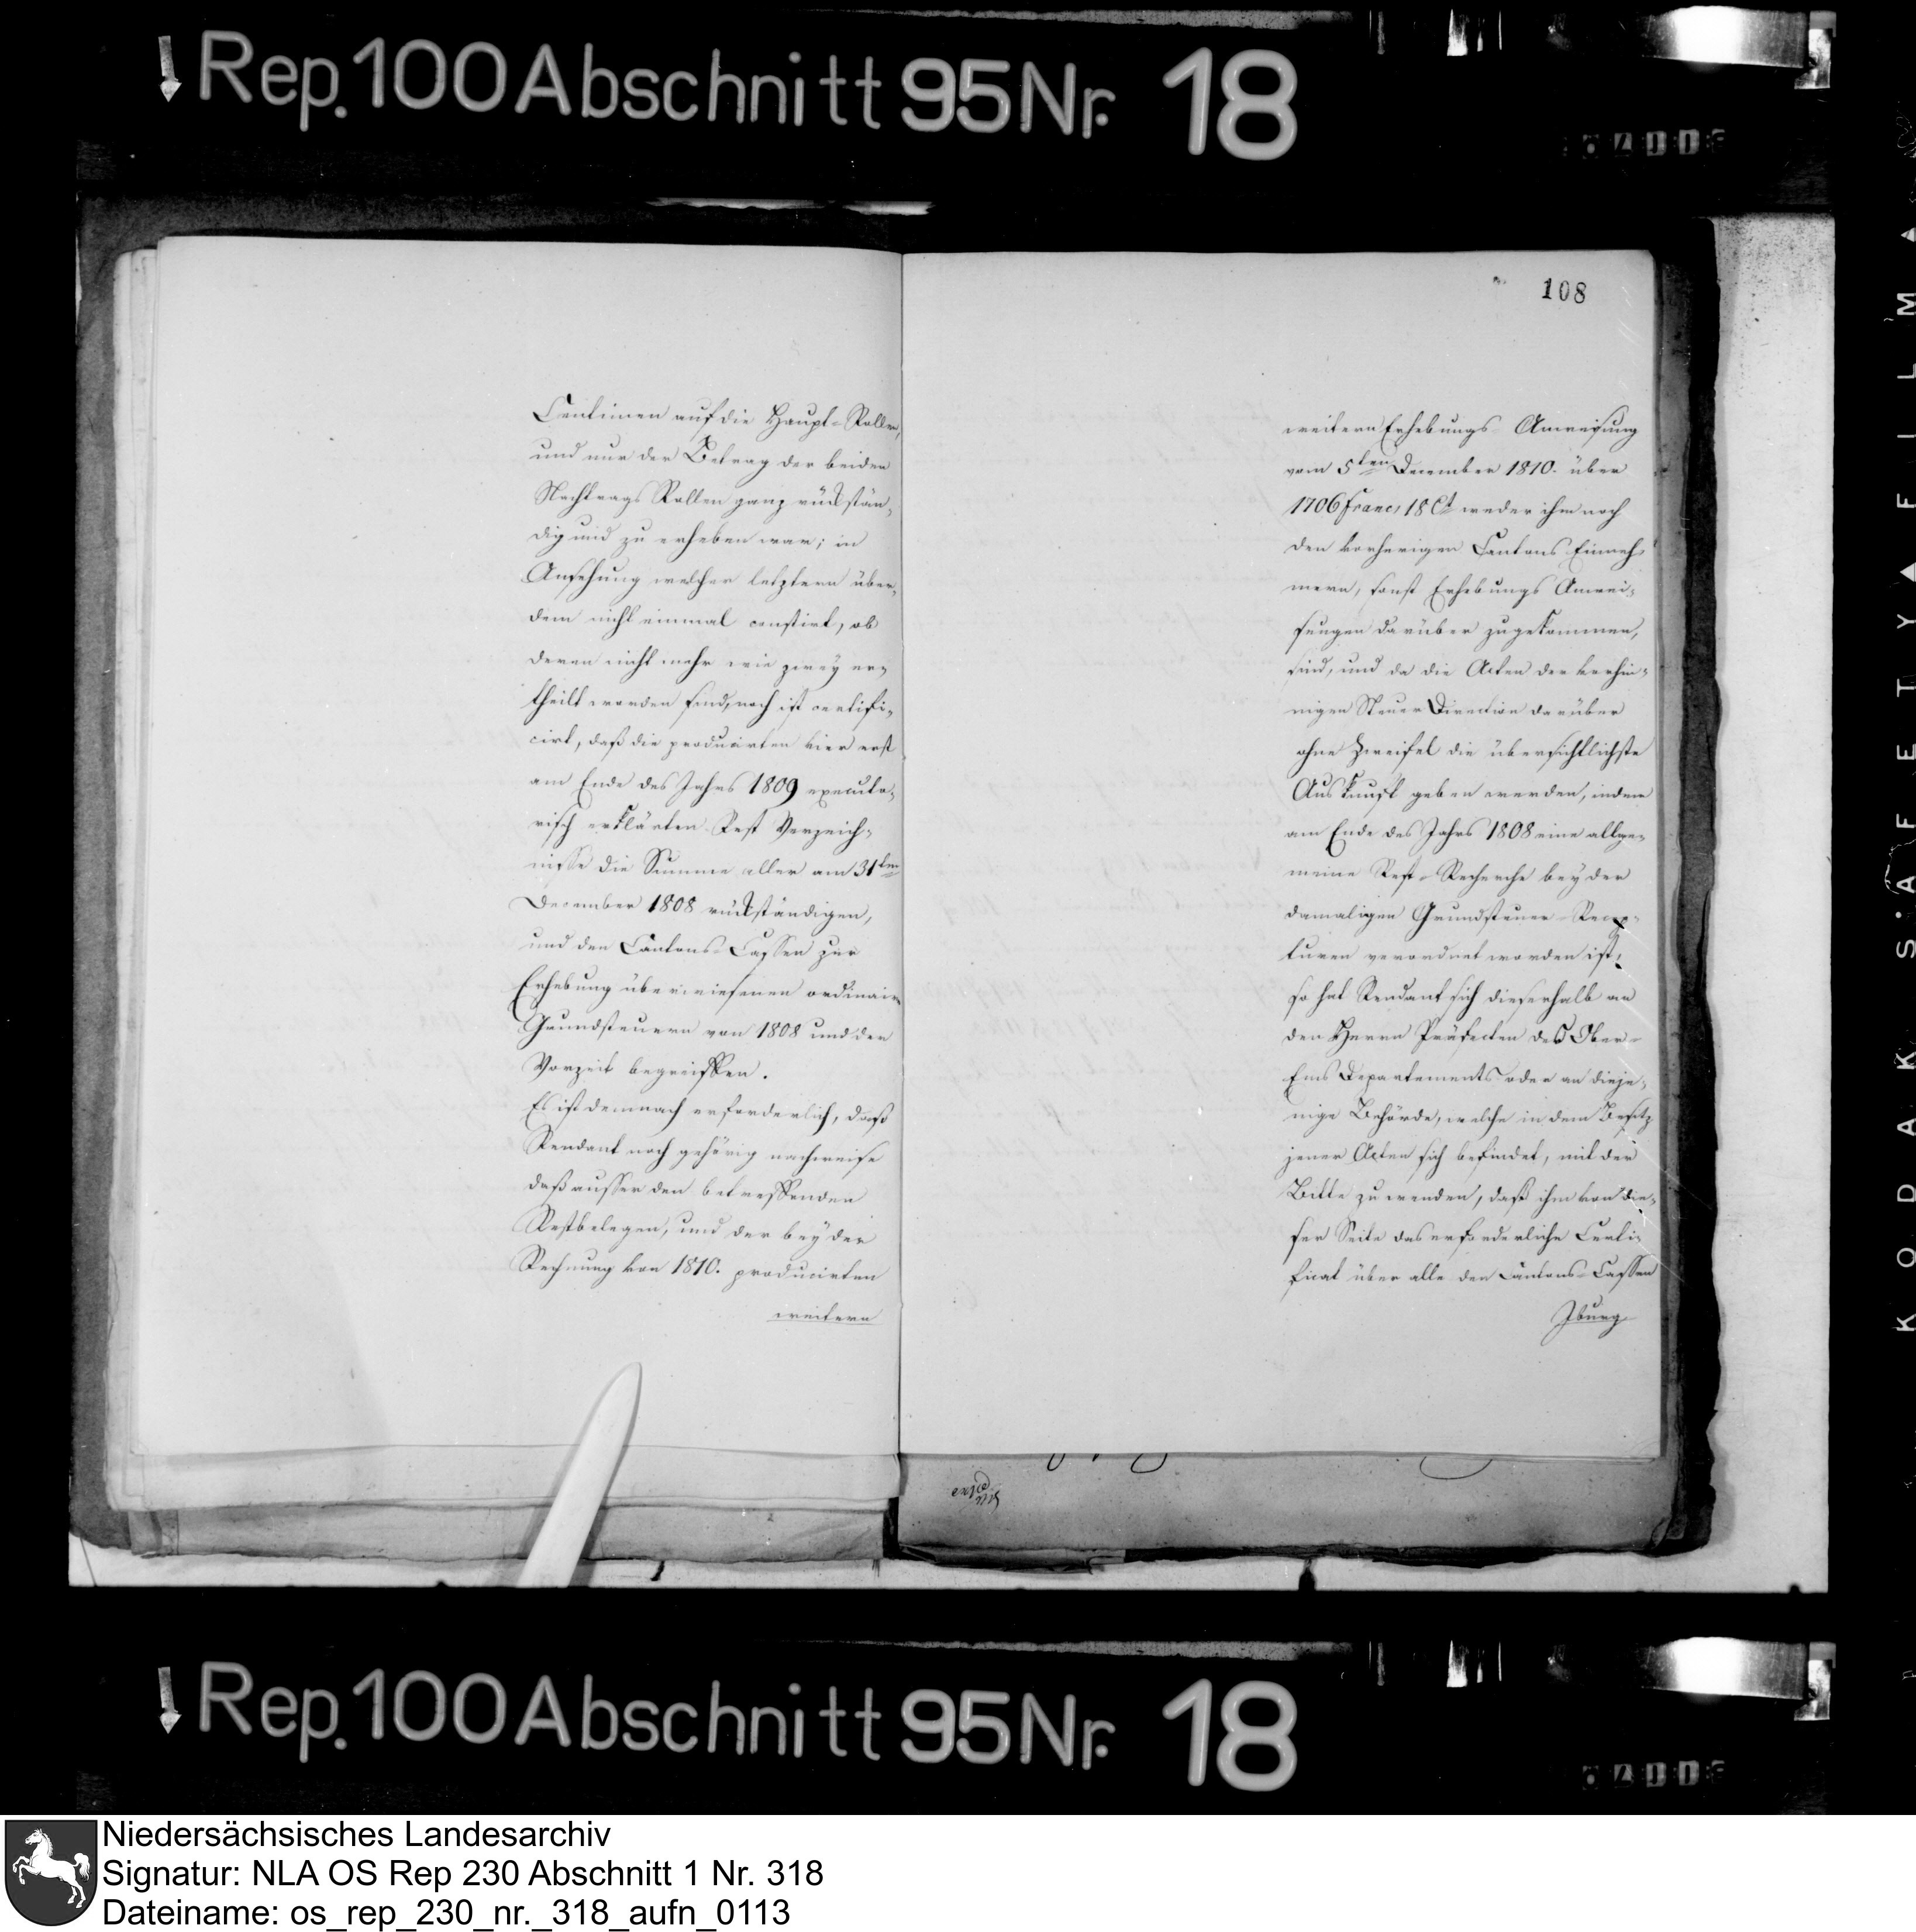 Rep. 100 Abschnitt 95 Nr. 18
108
Centimen auf die Haupt-Rollen,
und nur der Betrag der beiden
Nachtrags Rollen ganz rückstän-
dig und zu erheben war; in
Ansehung welcher letztern über-
dem nicht einmal constirt, ob
deren nicht mehr wie zwey er-
theilt worden sind, noch ist certifi-
cirt, daß die producirten hier erst
am Ende des Jahrs 1809 executo-
risch erklärten Rest Verzeich-
nisse die Summe aller am 31ten
December 1808 rückständigen,
und den Cantons-Cassen zur
Erhebung überwiesenen ordinairen
Grundsteuern von 1808 und der
Vorzeit begreiffen.
Es ist demnach erforderlich, daß
Rendant noch gehörig nachweise
daß ausser den betreffenden
Restbelegen, und der bey der
Rechnung von 1810. producirten
weitern
weitern Erhebungs-Anweisung
vom 5ten December 1810. über
1706 Francs 18 Ct weder ihm noch
den vorherigen Cantons Einneh-
mern, sonst Erhebungs Anwei-
sungen darüber zugekommen,
sind, und da die Acten der vorhin-
nigen Steuer Direction darüber
ohne Zweifel die übersichtlichste
Auskunft geben werden, indem
am Ende des Jahrs 1808 eine allge-
meine Rest-Recherche bey der
damaligen Grundsteuer-Recep-
turen verordnet worden ist,
so hat Rendant sich dieserhalb an
den Herrn Präfecten des Ober-
Ems Departements oder an dieje-
nige Behörde, welche in dem Besitz
jener Acten sich befindet, mit der
Bitte zu wenden, daß ihm von die-
ser Seite das erforderliche Certi-
ficat über alle den Cantons-Cassen
Iburg
KODAK SAFETY FILM
Rep. 100 Abschnitt 95 Nr. 18
Niedersächsisches Landesarchiv
Signatur: NLA OS Rep 230 Abschnitt 1 Nr. 318
Dateiname: os_rep_230_nr._318_aufn_0113